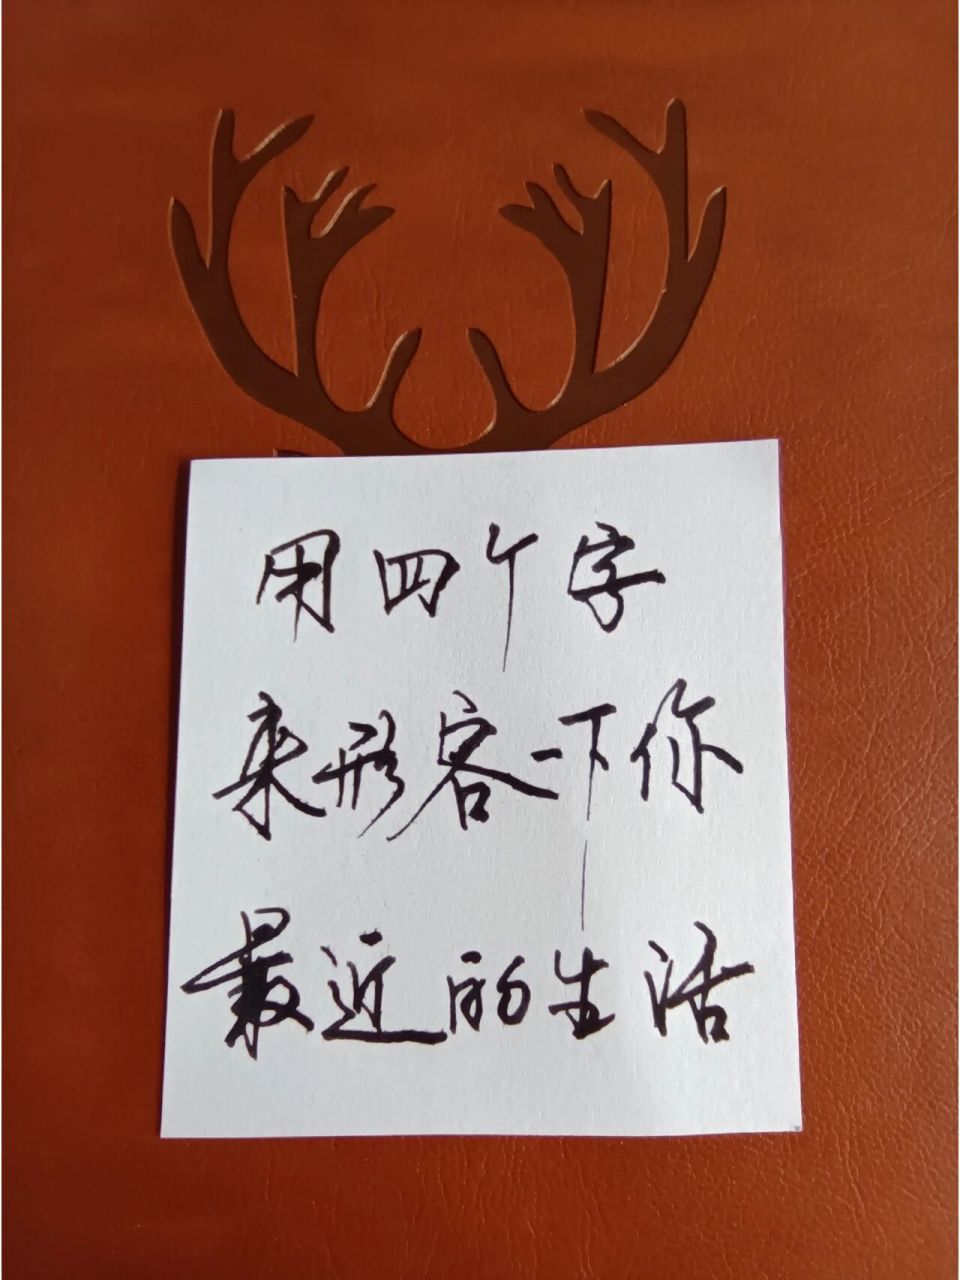 用四个字
来形容一下你
最近的生活